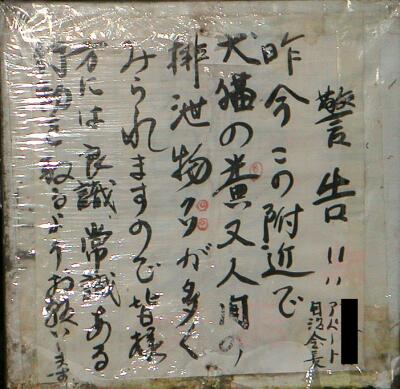 警告!!
アパート
自治会長
昨今この附近で
犬猫の糞又人間の
排泄物が多く
みられますので皆様
方には良識、常識ある
行動を取るようお願いします